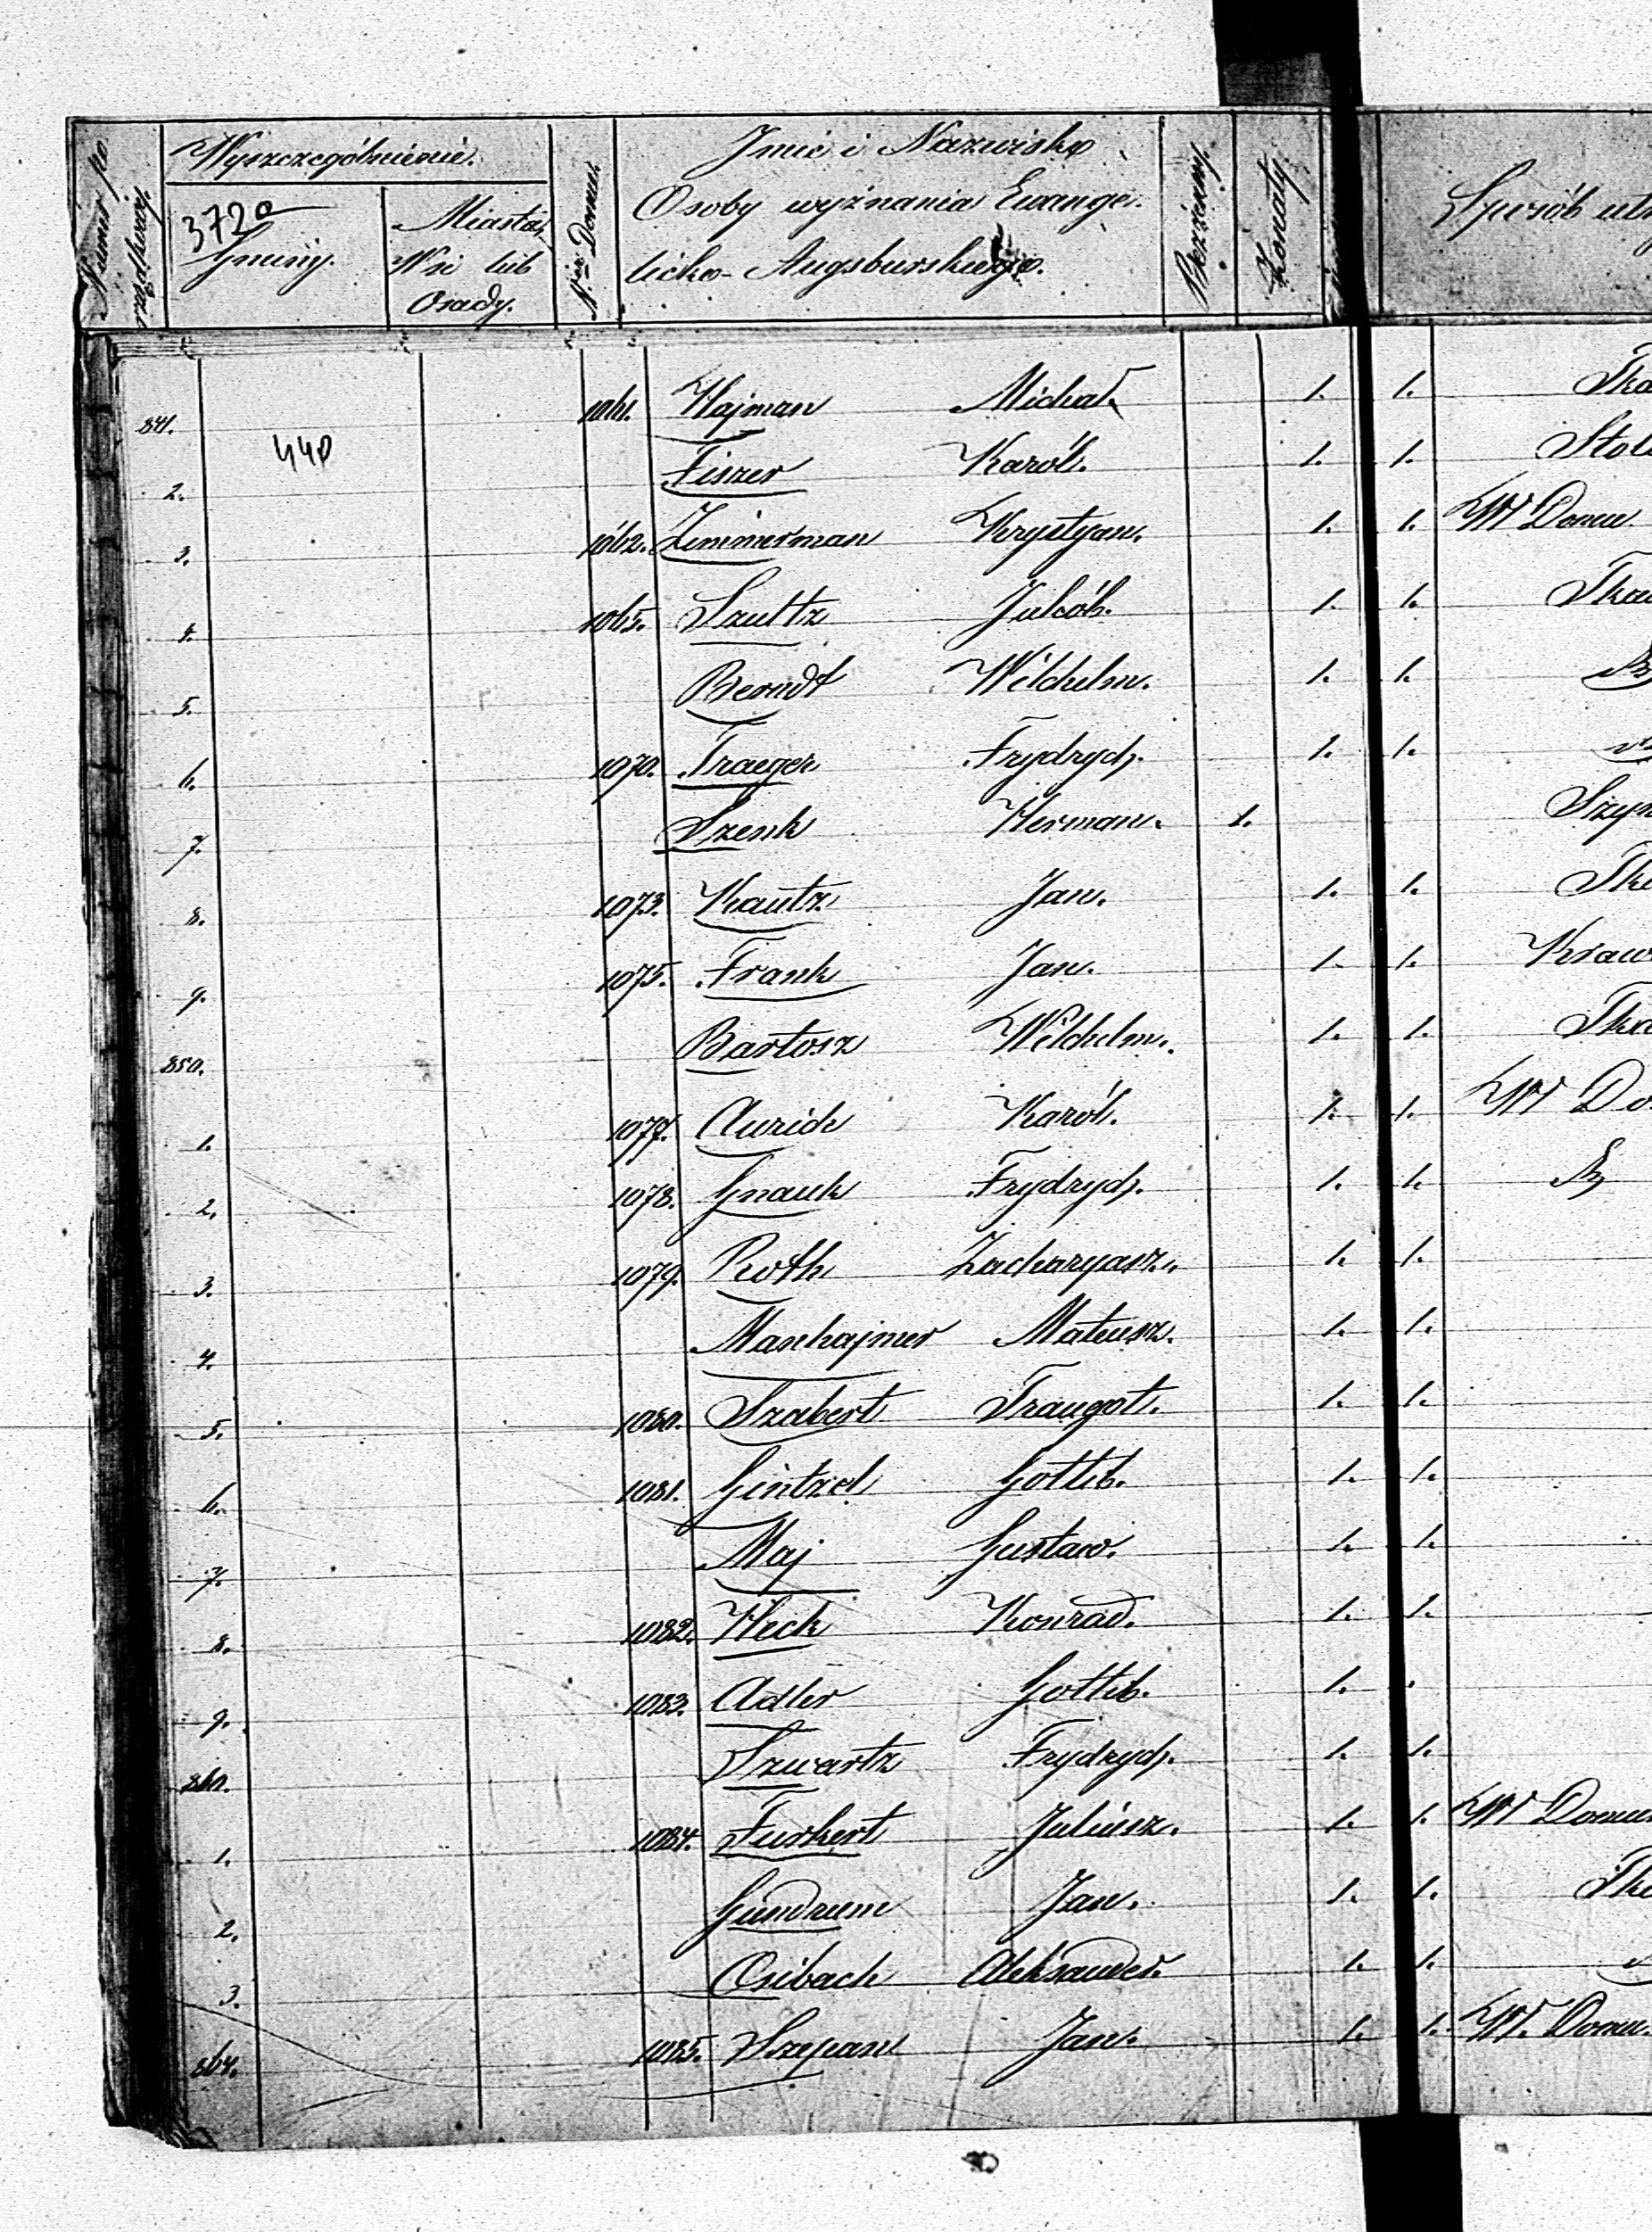 Numer po
rządkowy.
Wyszczególnienie.
3720
Gminy.
Miasta,
Wsi lub
Osady.
N.er Domu.
Jmie i Nazwisko
Osoby wyznania Ewange-
licko-Augsburskiego.
Bezżenny.
Żonaty.
Sposób
440
841. 1061. Hajman Michał. 1. 1.
2. Fiszer Karól. 1. 1.
3. 1062. Zimmerman Krystyan. 1. 1. Domu
4. 1065. Szultz Jakób. 1. 1.
5. Berndt Wilchelm. 1. 1.
6. 1070. Traeger Frydrych. 1. 1.
7. Szenk Herman. 1.
8. 1073. Kautz Jan. 1. 1.
9. 1075. Frank Jan. 1. 1.
850. Bartosz Wilchelm. 1. 1.
1. 1077. Aurich Karól. 1. 1.
2. 1078. Gnauk Frydrych. 1. 1.
3. 1079. Roth Zacharyasz. 1. 1.
4. Manhajmer Mateusz. 1. 1.
5. 1080. Szabert Traugot. 1. 1.
6. 1081. Gintzel Gottlib. 1. 1.
7. Maj Gustaw. 1. 1.
8. 1082. Heck Konrad. 1. 1.
9. 1083. Adler Gottlib. 1.
860. Szwartz Frydrych. 1. 1.
1. 1084. Furkert Juliusz. 1. 1. Domu
2. Gundrum Jan. 1. 1.
3. Osibach Aleksander. 1. 1.
864. 1085. Szepan Jan. 1. 1. Domu